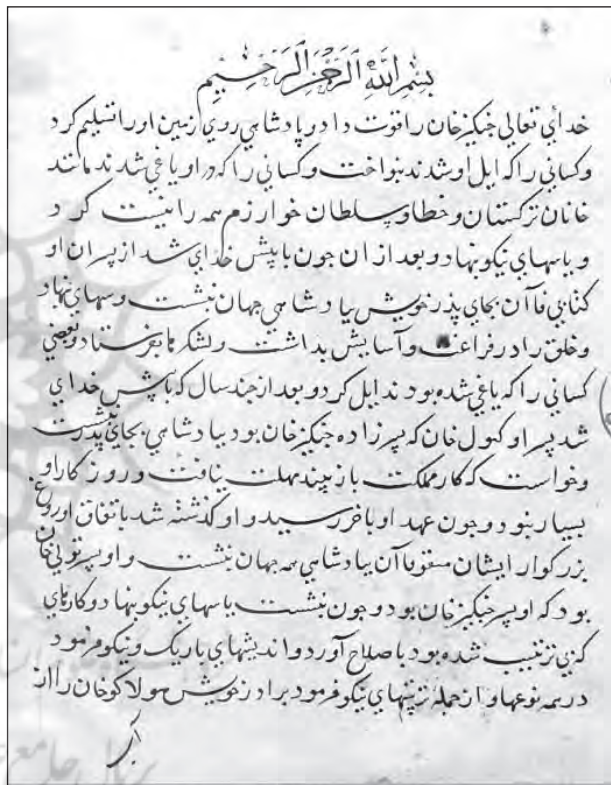 بسم الله الرحمن الرحیم
خدای تعالی جنکیزخان را قوت داد و پادشاهی روی زمین او را تسلیم کرد
و کسانی را که ایل او شدند بنواخت و کسانی را که در او یاغی شدند مانند
خانان ترکستان و خطا و سلطان خوارزم همه را نیست کرد
و یاسهای نیکو نهاد و بعد از ان جون با پیش خدای شد از پسران او
قاآن بجای پذر خویش بپادشاهی جهان نشست و یسهای نهاد
و خلق را در فراغت و آسایش بداشت و لشکرها بفرستاد و بعضی
کسانی را که یاغی شده بودند ایل کرد و بعد از جند سال که با پیش خدای
شد پسر او کیوک خان که پسرزاده جنکیزخان بود بپادشاهی بجای پذر نشست
و خواست که کار مملکت باز بیند مهلت نیافت و روزکار او
بسیار نبود و جون عهد او باخر رسید و او کذشته شد باتفاق اوروغ
بزرکوار ایشان منکوقاآن بپادشاهی همه جهان نشست و او پسر تولی خان
بود که او پسر جنکیزخان بود و جون نشست یاسهای نیکو نهاد و کارهای
کژ بی ترتیب شده بود با صلاح آورد و اندیشهای باریک و نیکو فرمود
در همه نوعها و از جمله ترتیبهای نیکو فرمود برادر خویش هولاکو خان را از